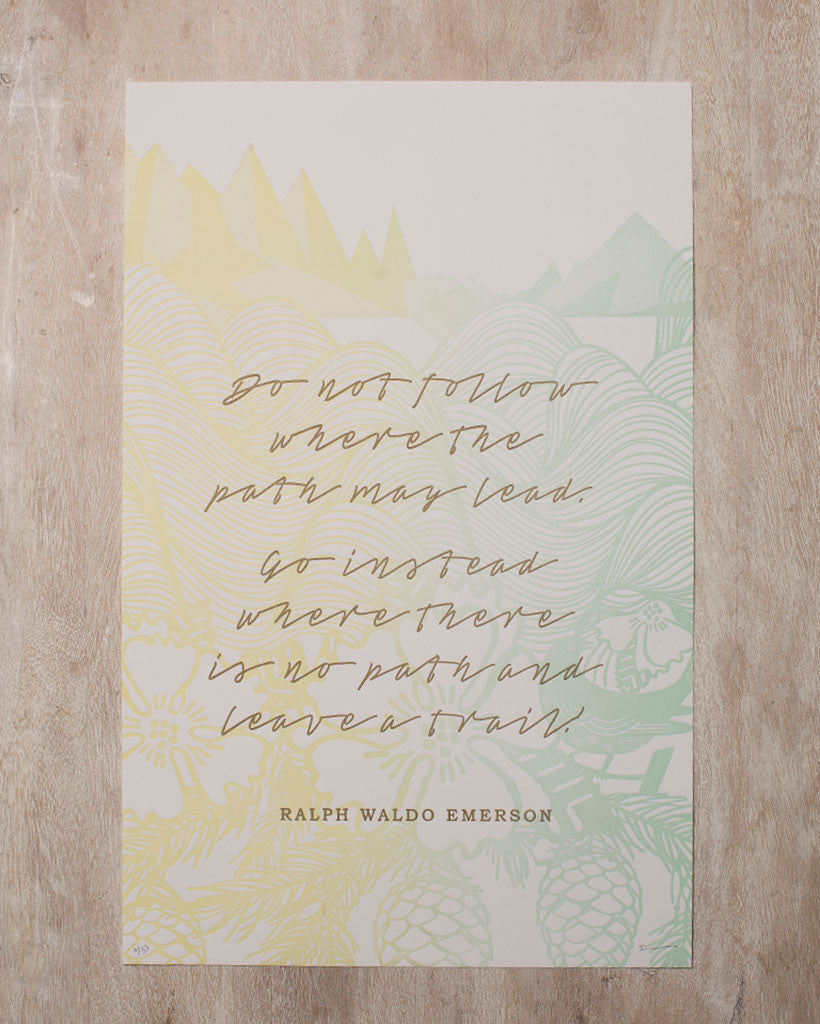 Do not follow
where the
path may lead.
Go instead
where there
is no path and
leave a trail!
RALPH WALDO EMERSON